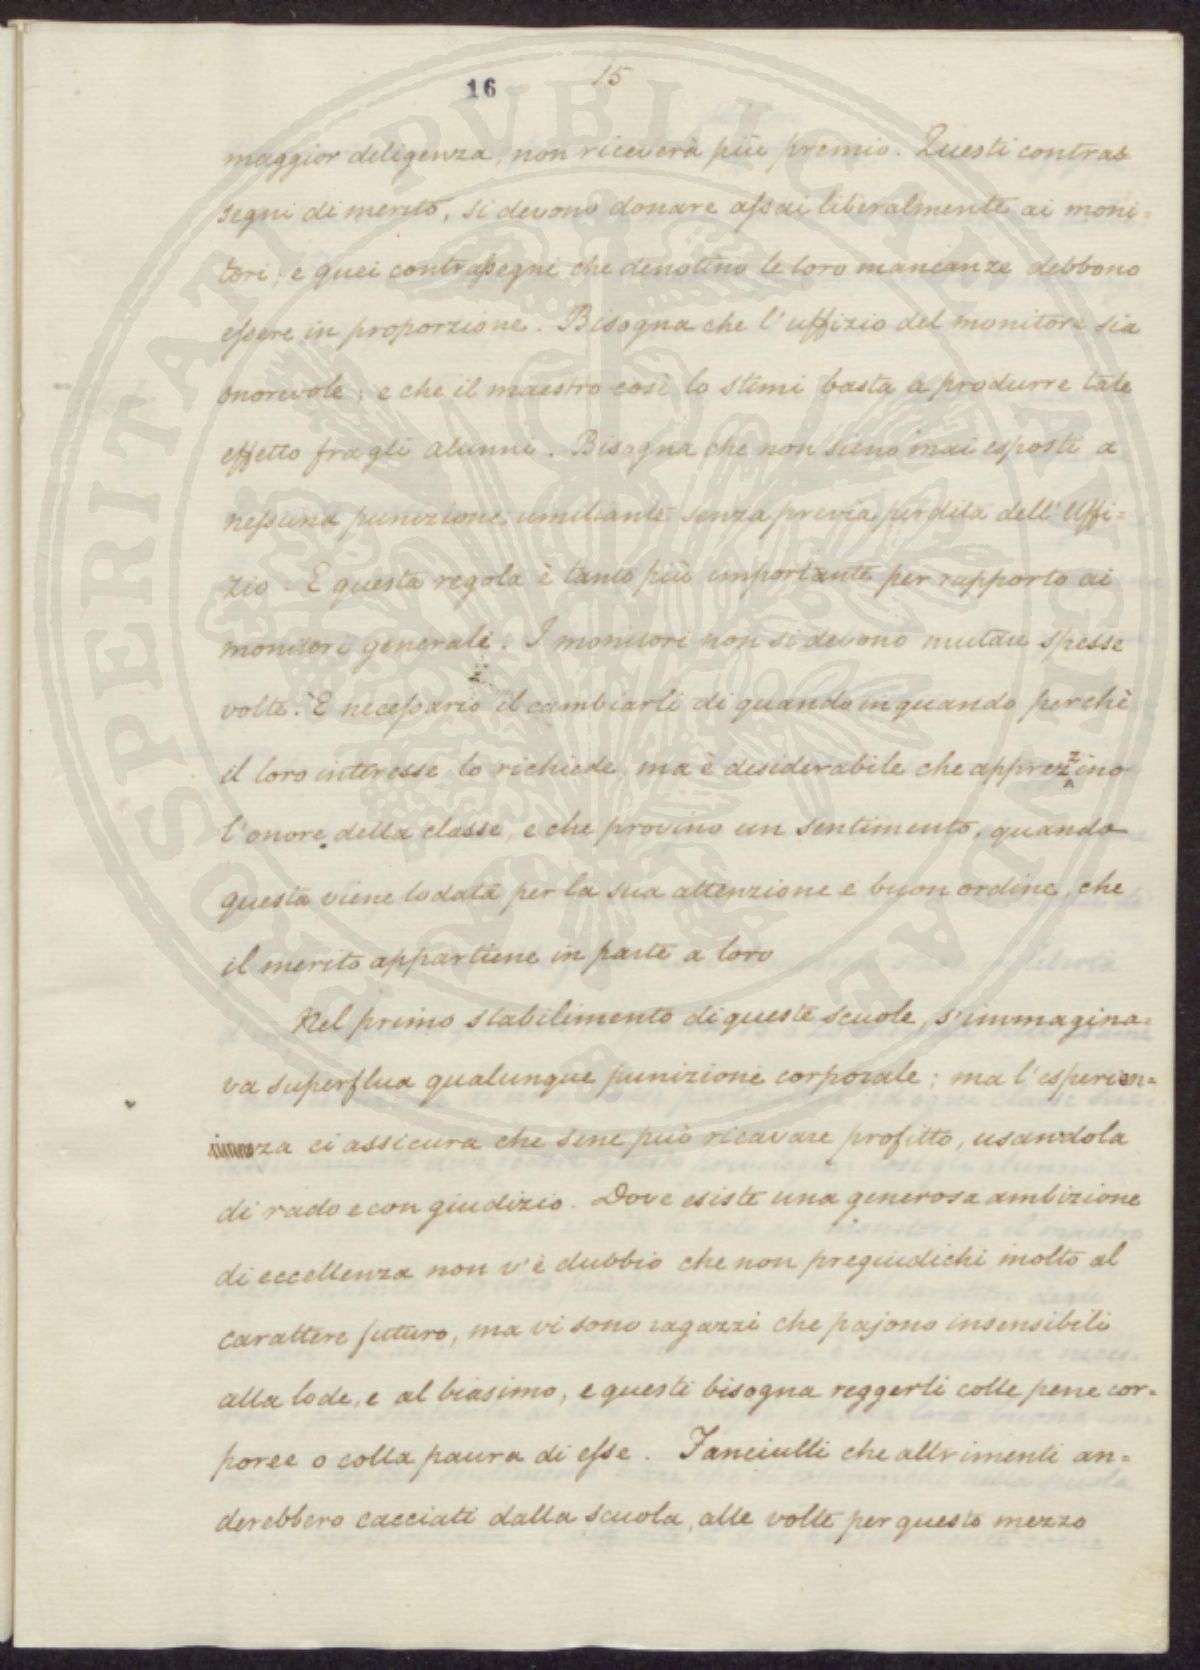 16 15
maggior diligenza, non riceverà più premio. Questi contras-
segni di merito, si devono donare assai liberalmente ai moni=
tori; e quei contrassegni che denotino le loro mancanze debbono
essere in proporzione. Bisogna che l'uffizio del monitore sia
onorevole; e che il maestro così lo stimi basta a produrre tale
effetto fra gli alunni. Bisogna che non sieno mai esposti a
nessuna punizione umiliante senza previa perdita dell'Uffi=
zio. E questa regola è tanto più importante per rapporto ai
monitori generali. I monitori non si devono mutare spesse
volte. È necessario il cambiarli di quando in quando perchè
il loro interesse lo richiede, ma è desiderabile che apprezzino
l'onore della classe, e che provino un sentimento, quando
questa viene lodata per la sua attenzione e buon ordine, che
il merito appartiene in parte a loro
Nel primo stabilimento di queste scuole, s'immagina=
va superflua qualunque punizione corporale; ma l'esperien=
za ci assicura che sene può ricavare profitto, usandola
di rado e con giudizio. Dove esiste una generosa ambizione
di eccellenza non v'è dubbio che non pregiudichi molto al
carattere futuro, ma vi sono ragazzi che pajono insensibili
alla lode, e al biasimo, e questi bisogna reggerli colle pene cor=
poree o colla paura di esse. Fanciulli che altrimenti an=
derebbero cacciati dalla scuola, alle volte per questo mezzo
PROSPERITATI PVBLICAE AVGENDAE